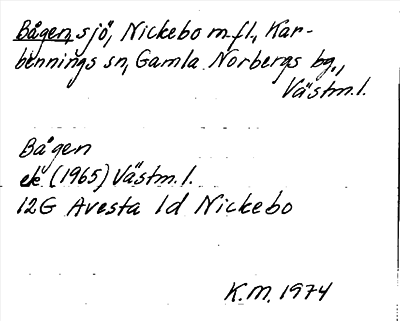 Bågen, sjö, Nickebo m fl, Kar-
bennings sn, Gamla Norbergs bg.,
Västm. l.
Bågen
ek (1965) Västm. l.
12G Avesta 1d Nickebo
K.M. 1974